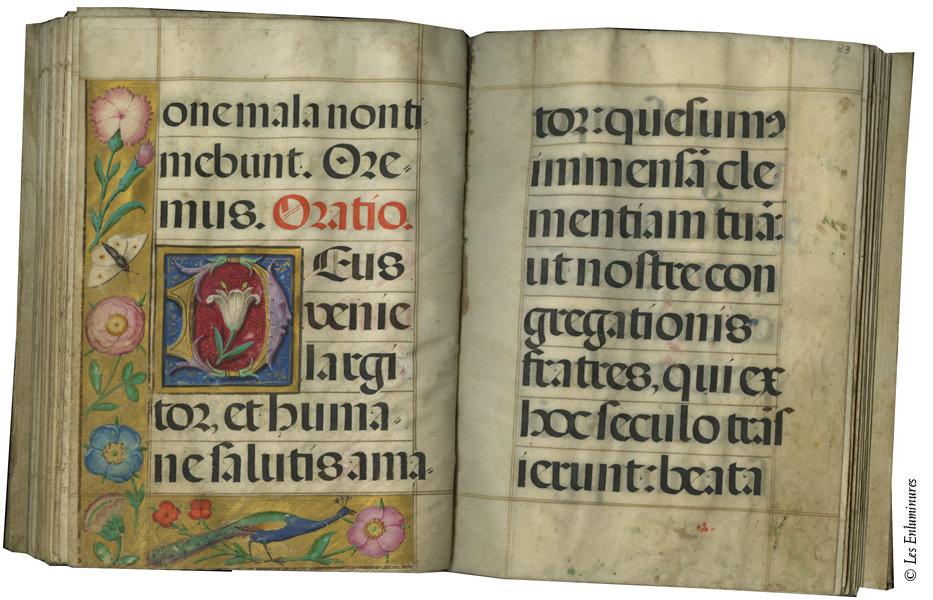 one mala non ti
mebunt. Ore=
mus. Oratio.
Deus
venie
largi
tor, et huma=
ne salutis ama=
23
tor: quesumꝰ
immensā cle=
mentiam tuā:
ut nostre con
gregationis
fratres, qui ex
hoc seculo trās
ierunt: beata
© Les Enluminures